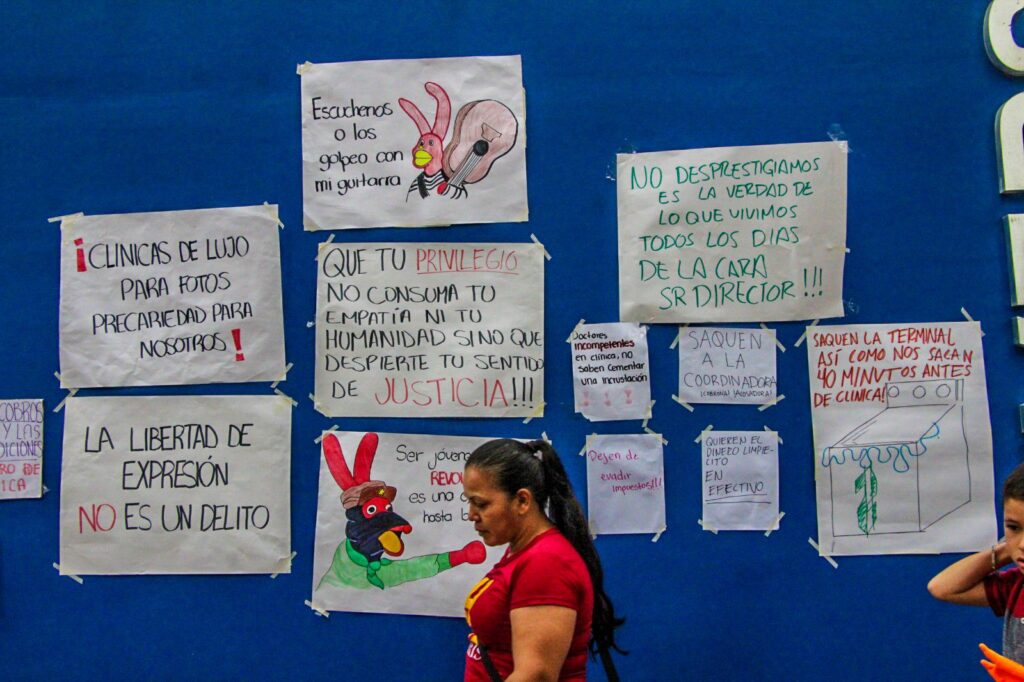 Escuchenos
o los
golpeo con
mi guitarra
NO DESPRESTIGIAMOS
ES LA VERDAD DE
LO QUE VIVIMOS
TODOS LOS DIAS
DE LA CARA
SR DIRECTOR!!!
¡CLINICAS DE LUJO
PARA FOTOS
PRECARIEDAD PARA
NOSOTROS!
QUE TU PRIVILEGIO
NO CONSUMA TU
EMPATÍA NI TU
HUMANIDAD SINO QUE
DESPIERTE TU SENTIDO
DE JUSTICIA!!!
Doctores
incompetentes
en clínica, no
saben Cementar
una incrustación
!!!
SAQUEN
A LA
COORDINADORA
¡COBRONA! ¡AGUADORA!
SAQUEN LA TERMINAL
ASÍ COMO NOS SACAN
40 MINUTOS ANTES
DE CLINICA!
COBROS
Y LAS
DICIONES
RO DE
ICA
LA LIBERTAD DE
EXPRESIÓN
NO ES UN DELITO
Ser jóven
REVO
es una
hasta b
Dejen de
evadir
impuestos!!!
QUIEREN EL
DINERO LIMPIE-
CITO
EN
EFECTIVO